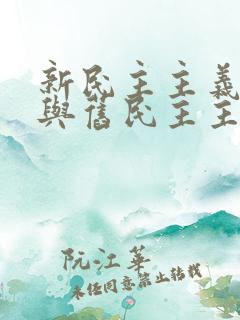 新民主主義
與舊民主主
阮江華
未經同意禁止轉載